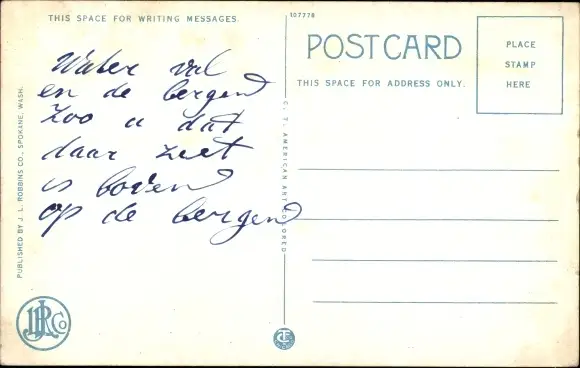 THIS SPACE FOR WRITING MESSAGES.
Water val
en de bergen
zoo u dat
daar zeet
is boven
op de bergen
PUBLISHED BY J. L. ROBBINS CO., SPOKANE, WASH.
JLR Co
107778
POST CARD
THIS SPACE FOR ADDRESS ONLY.
PLACE
STAMP
HERE
C. T. AMERICAN ART COLORED